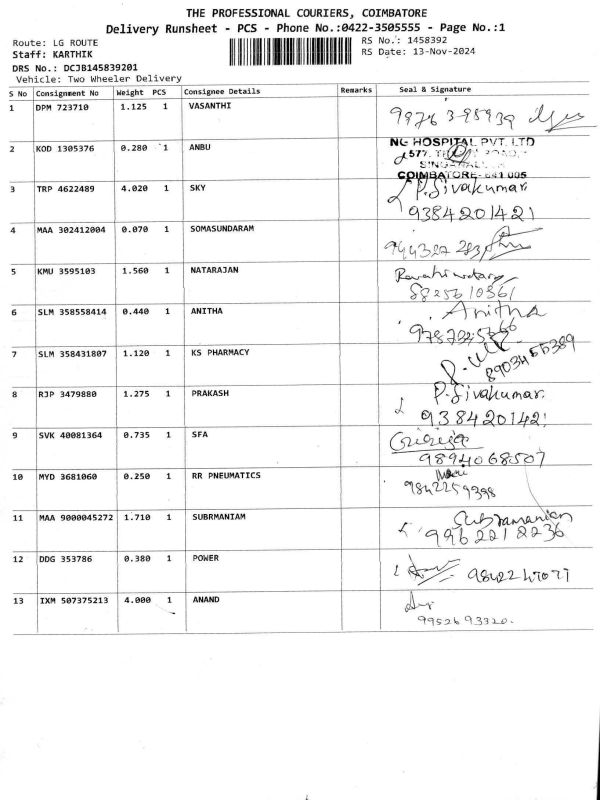 THE PROFESSIONAL COURIERS, COIMBATORE
Delivery Runsheet - PCS - Phone No.:0422-3505555 - Page No.:1
Route: LG ROUTE
RS No.: 1458392
Staff: KARTHIK
RS Date: 13-Nov-2024
DRS No.: DCJB145839201
Vehicle: Two Wheeler Delivery
S No Consignment No Weight PCS Consignee Details Remarks Seal & Signature
1 DPM 723710 1.125 1 VASANTHI
2 KOD 1305376 0.280 1 ANBU NG HOSPITAL PVT. LTD
577,
COIMBATORE-641 005
3 TRP 4622489 4.020 1 SKY P.Sivakumar
9384201421
4 MAA 302412004 0.070 1 SOMASUNDARAM
5 KMU 3595103 1.560 1 NATARAJAN
8825610361
6 SLM 358558414 0.440 1 ANITHA Anitha
7 SLM 358431807 1.120 1 KS PHARMACY
8903455389
8 RJP 3479880 1.275 1 PRAKASH P.Sivakumar
9384201421
9 SVK 40081364 0.735 1 SFA Girija
9894068507
10 MYD 3681060 0.250 1 RR PNEUMATICS
9842259398
11 MAA 9000045272 1.710 1 SUBRMANIAM Subramanian
9962212236
12 DDG 353786 0.380 1 POWER
13 IXM 507375213 4.000 1 ANAND
9952693320.